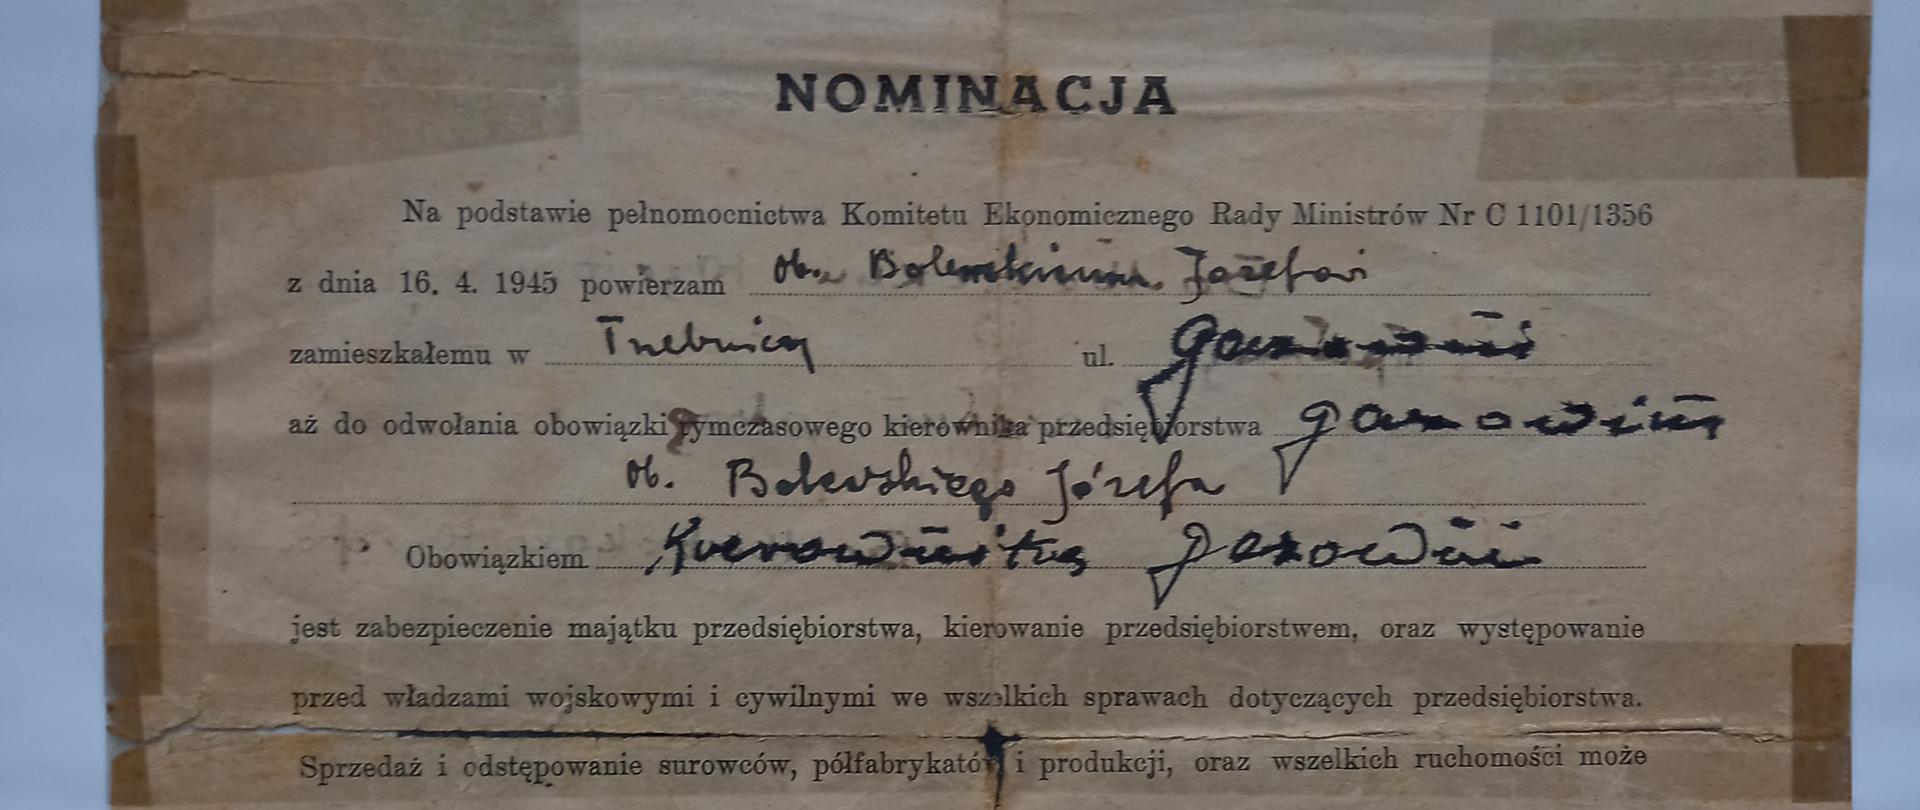 NOMINACJA
Na podstawie pełnomocnictwa Komitetu Ekonomicznego Rady Ministrów Nr C 1101/1356
z dnia 16. 4. 1945 powierzam ob. Józefowi
zamieszkałemu w Trzebnicy ul.
aż do odwołania obowiązki tymczasowego kierownika przedsiębiorstwa
ob. Bolewskiego Józefa
Obowiązkiem
jest zabezpieczenie majątku przedsiębiorstwa, kierowanie przedsiębiorstwem, oraz występowanie
przed władzami wojskowymi i cywilnymi we wszelkich sprawach dotyczących przedsiębiorstwa.
Sprzedaż i odstępowanie surowców, półfabrykatów i produkcji, oraz wszelkich ruchomości może